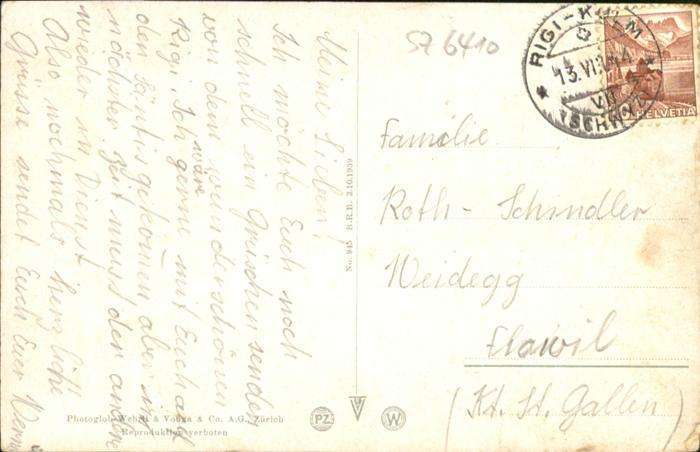 Meine Lieben!
Ich möchte Euch noch
schnell ein Grüschen senden
von dem wunderschönen
Rigi. Ich wär gerne mit Euch auf
den Säntis gekommen aber in
nächster Zeit muss der
wieder in Dienst
Also nochmals herzliche
Grüsse sendet Euch Euer
57 6410
RIGI-KULM
13.VI.
(SCHWYZ)
HELVETIA
Familie
Roth - Schindler
Weidegg
Flawil
(Kt. St. Gallen)
No. 945 B.R.B. 3.10.1939
Photoglob-Wehrli & Vouga & Co. A.G., Zürich
Reproduktion verboten
PZ
W